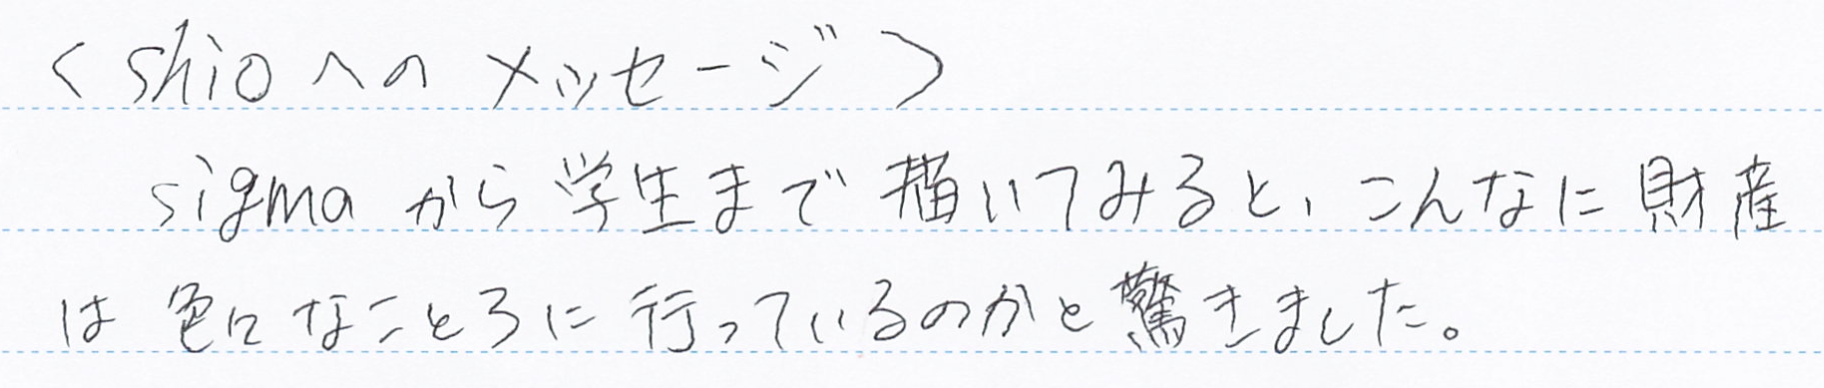 <shioへのメッセージ>
sigmaから学生まで描いてみると、こんなに財産
は色々なことろに行っているのかと驚きました。